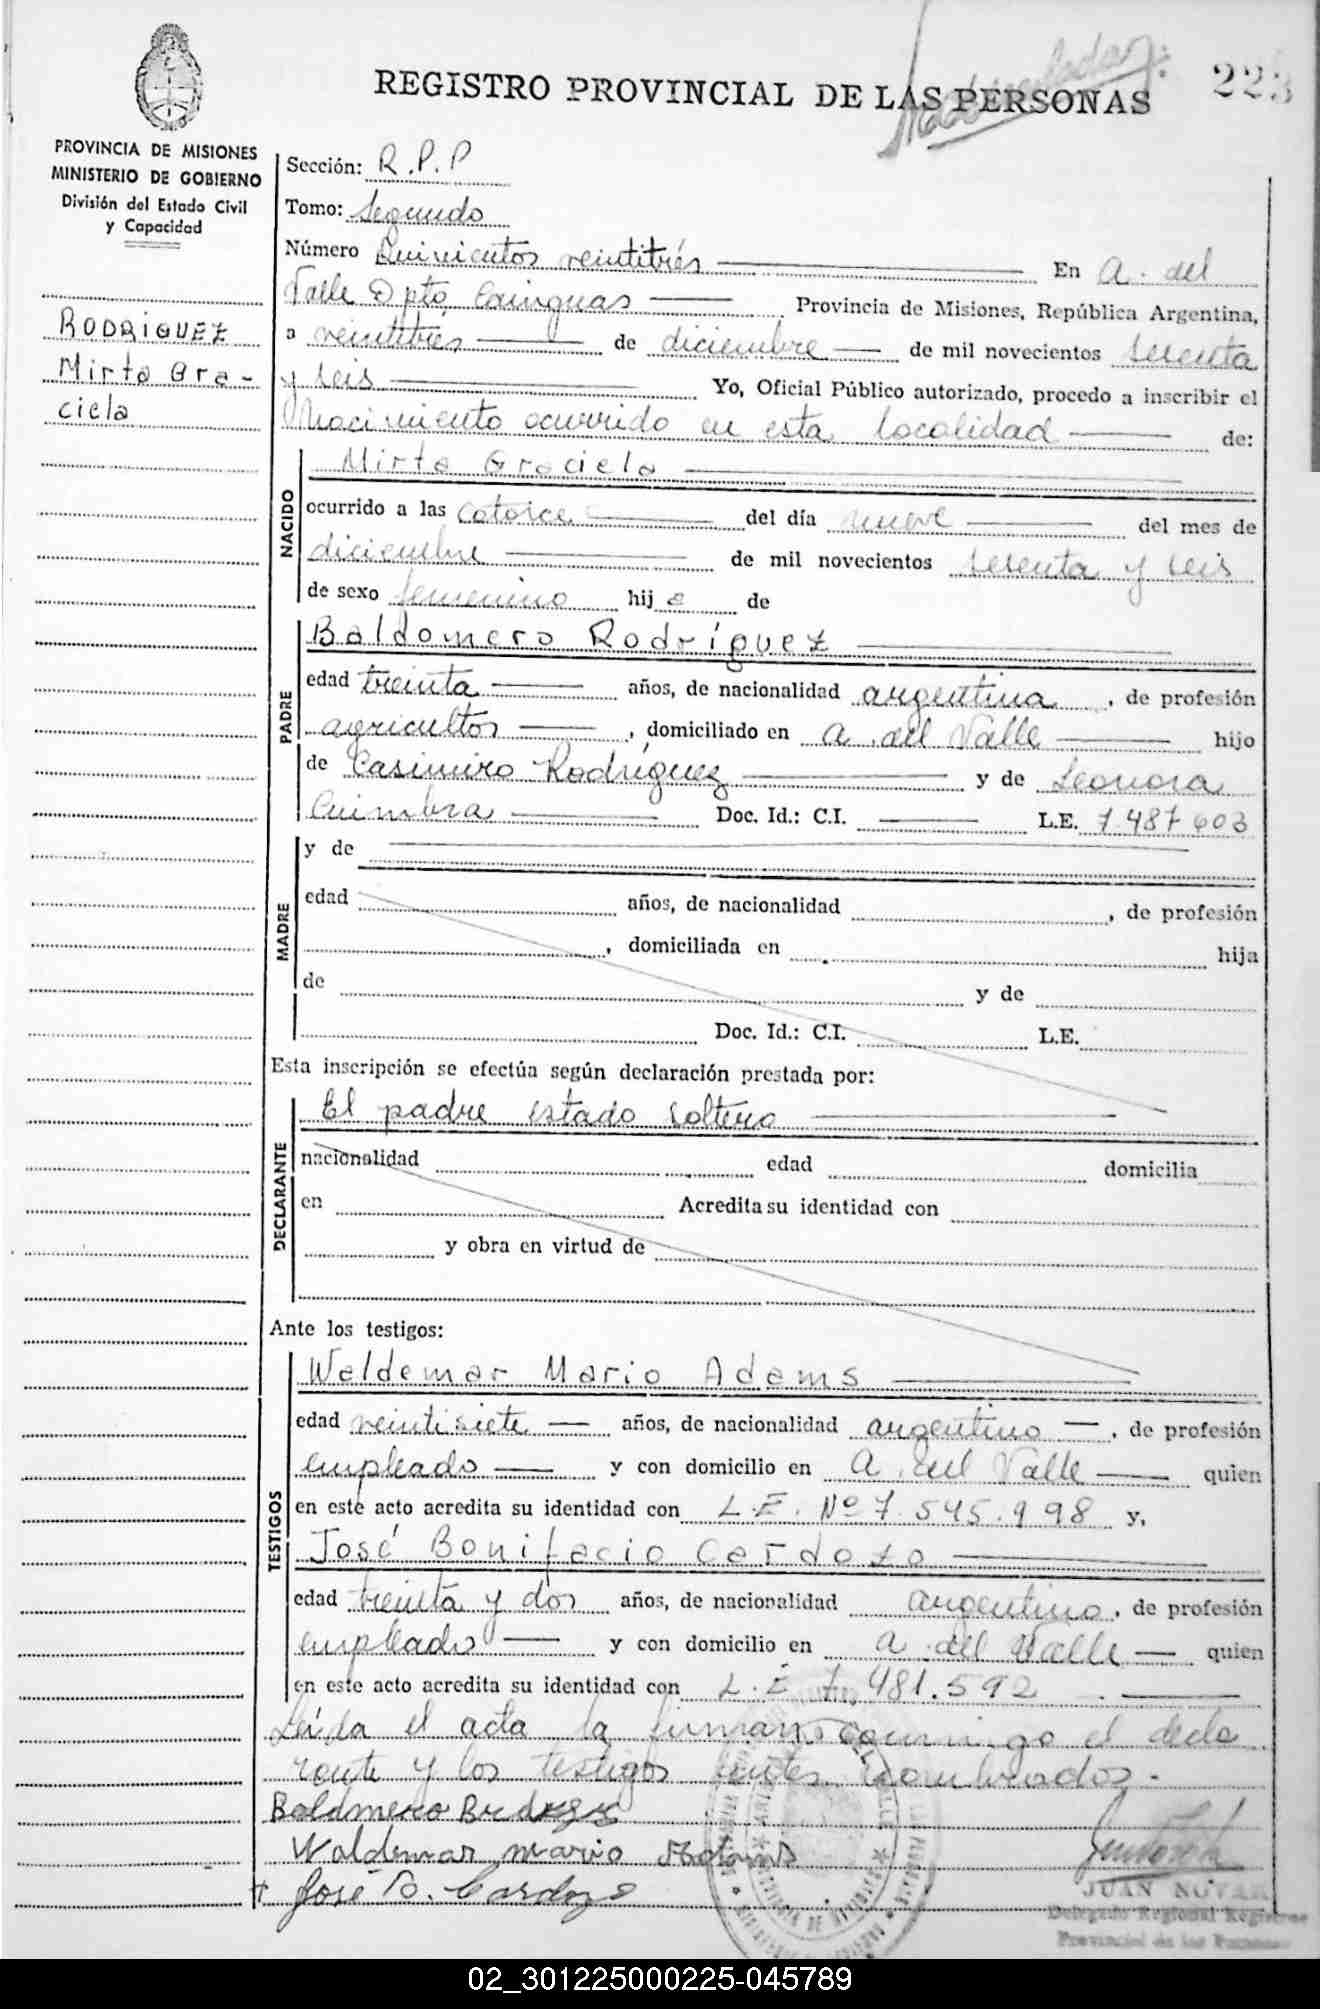 REGISTRO PROVINCIAL DE LAS PERSONAS
223
PROVINCIA DE MISIONES
MINISTERIO DE GOBIERNO
División del Estado Civil
y Capacidad
RODRIGUEZ
Mirta Gra-
ciela
Sección: R.P.P
Tomo: Segundo
Número Quinientos veintitrés En A. del
Valle Dpto Cainguas Provincia de Misiones, República Argentina,
a veintitrés de diciembre de mil novecientos sesenta
y seis Yo, Oficial Público autorizado, procedo a inscribir el
Nacimiento ocurrido en esta localidad de:
NACIDO
Mirta Graciela
ocurrido a las catorce del día nueve del mes de
diciembre de mil novecientos sesenta y seis
de sexo femenino hija de
PADRE
Baldomero Rodríguez
edad treinta años, de nacionalidad argentina, de profesión
agricultor, domiciliado en A. del Valle hijo
de Casimiro Rodríguez y de Leonora
Cuimbra Doc. Id.: C.I. L.E. 7.487.603
MADRE
y de
edad años, de nacionalidad , de profesión
, domiciliada en hija
de y de
Doc. Id.: C.I. L.E.
Esta inscripción se efectúa según declaración prestada por:
DECLARANTE
El padre estado soltero
nacionalidad edad domicilia
en Acredita su identidad con
y obra en virtud de
Ante los testigos:
TESTIGOS
Waldemar Mario Adams
edad veintisiete años, de nacionalidad argentino, de profesión
empleado y con domicilio en A. del Valle quien
en este acto acredita su identidad con L.E. Nº 7.545.998 y,
José Bonifacio Cardozo
edad treinta y dos años, de nacionalidad argentino, de profesión
empleado y con domicilio en A. del Valle quien
en este acto acredita su identidad con L.E 7.481.592
Leída el acta la firman conmigo el decla
rante y los testigos antes nombrados.-
Baldomero
Waldemar Mario Adams
José B. Cardozo
JUAN NOVAK
Delegado Regional Registro
Provincial de las Personas
02_301225000225-045789